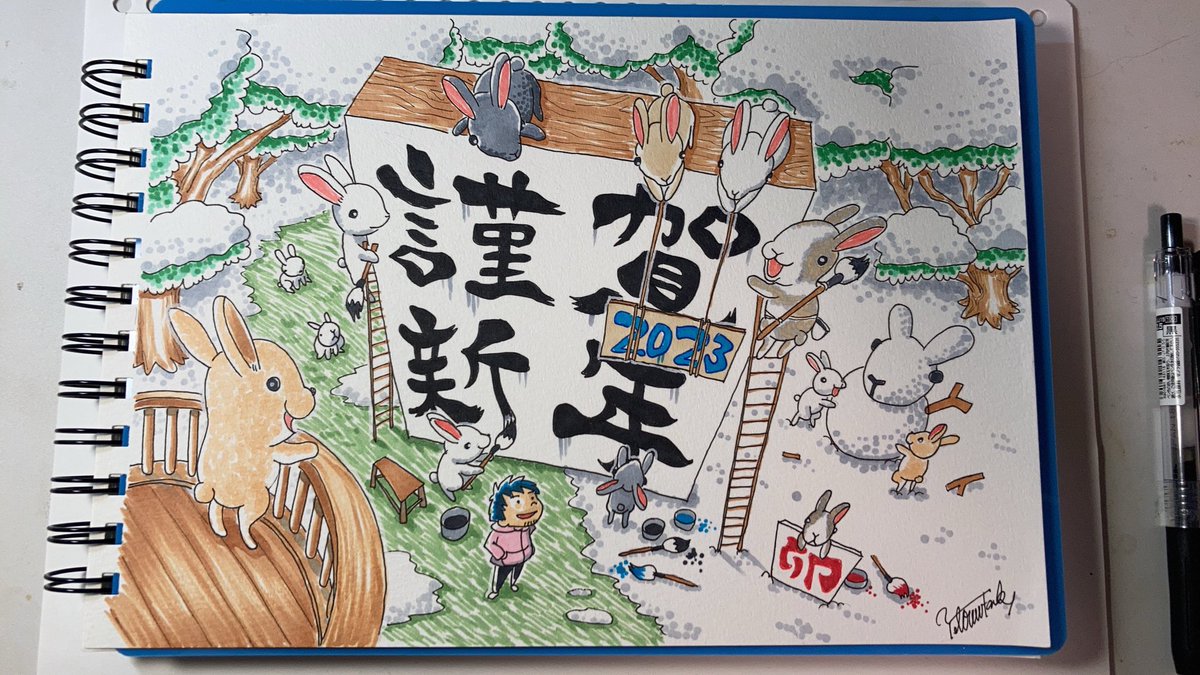 謹賀
新年
2023
卯